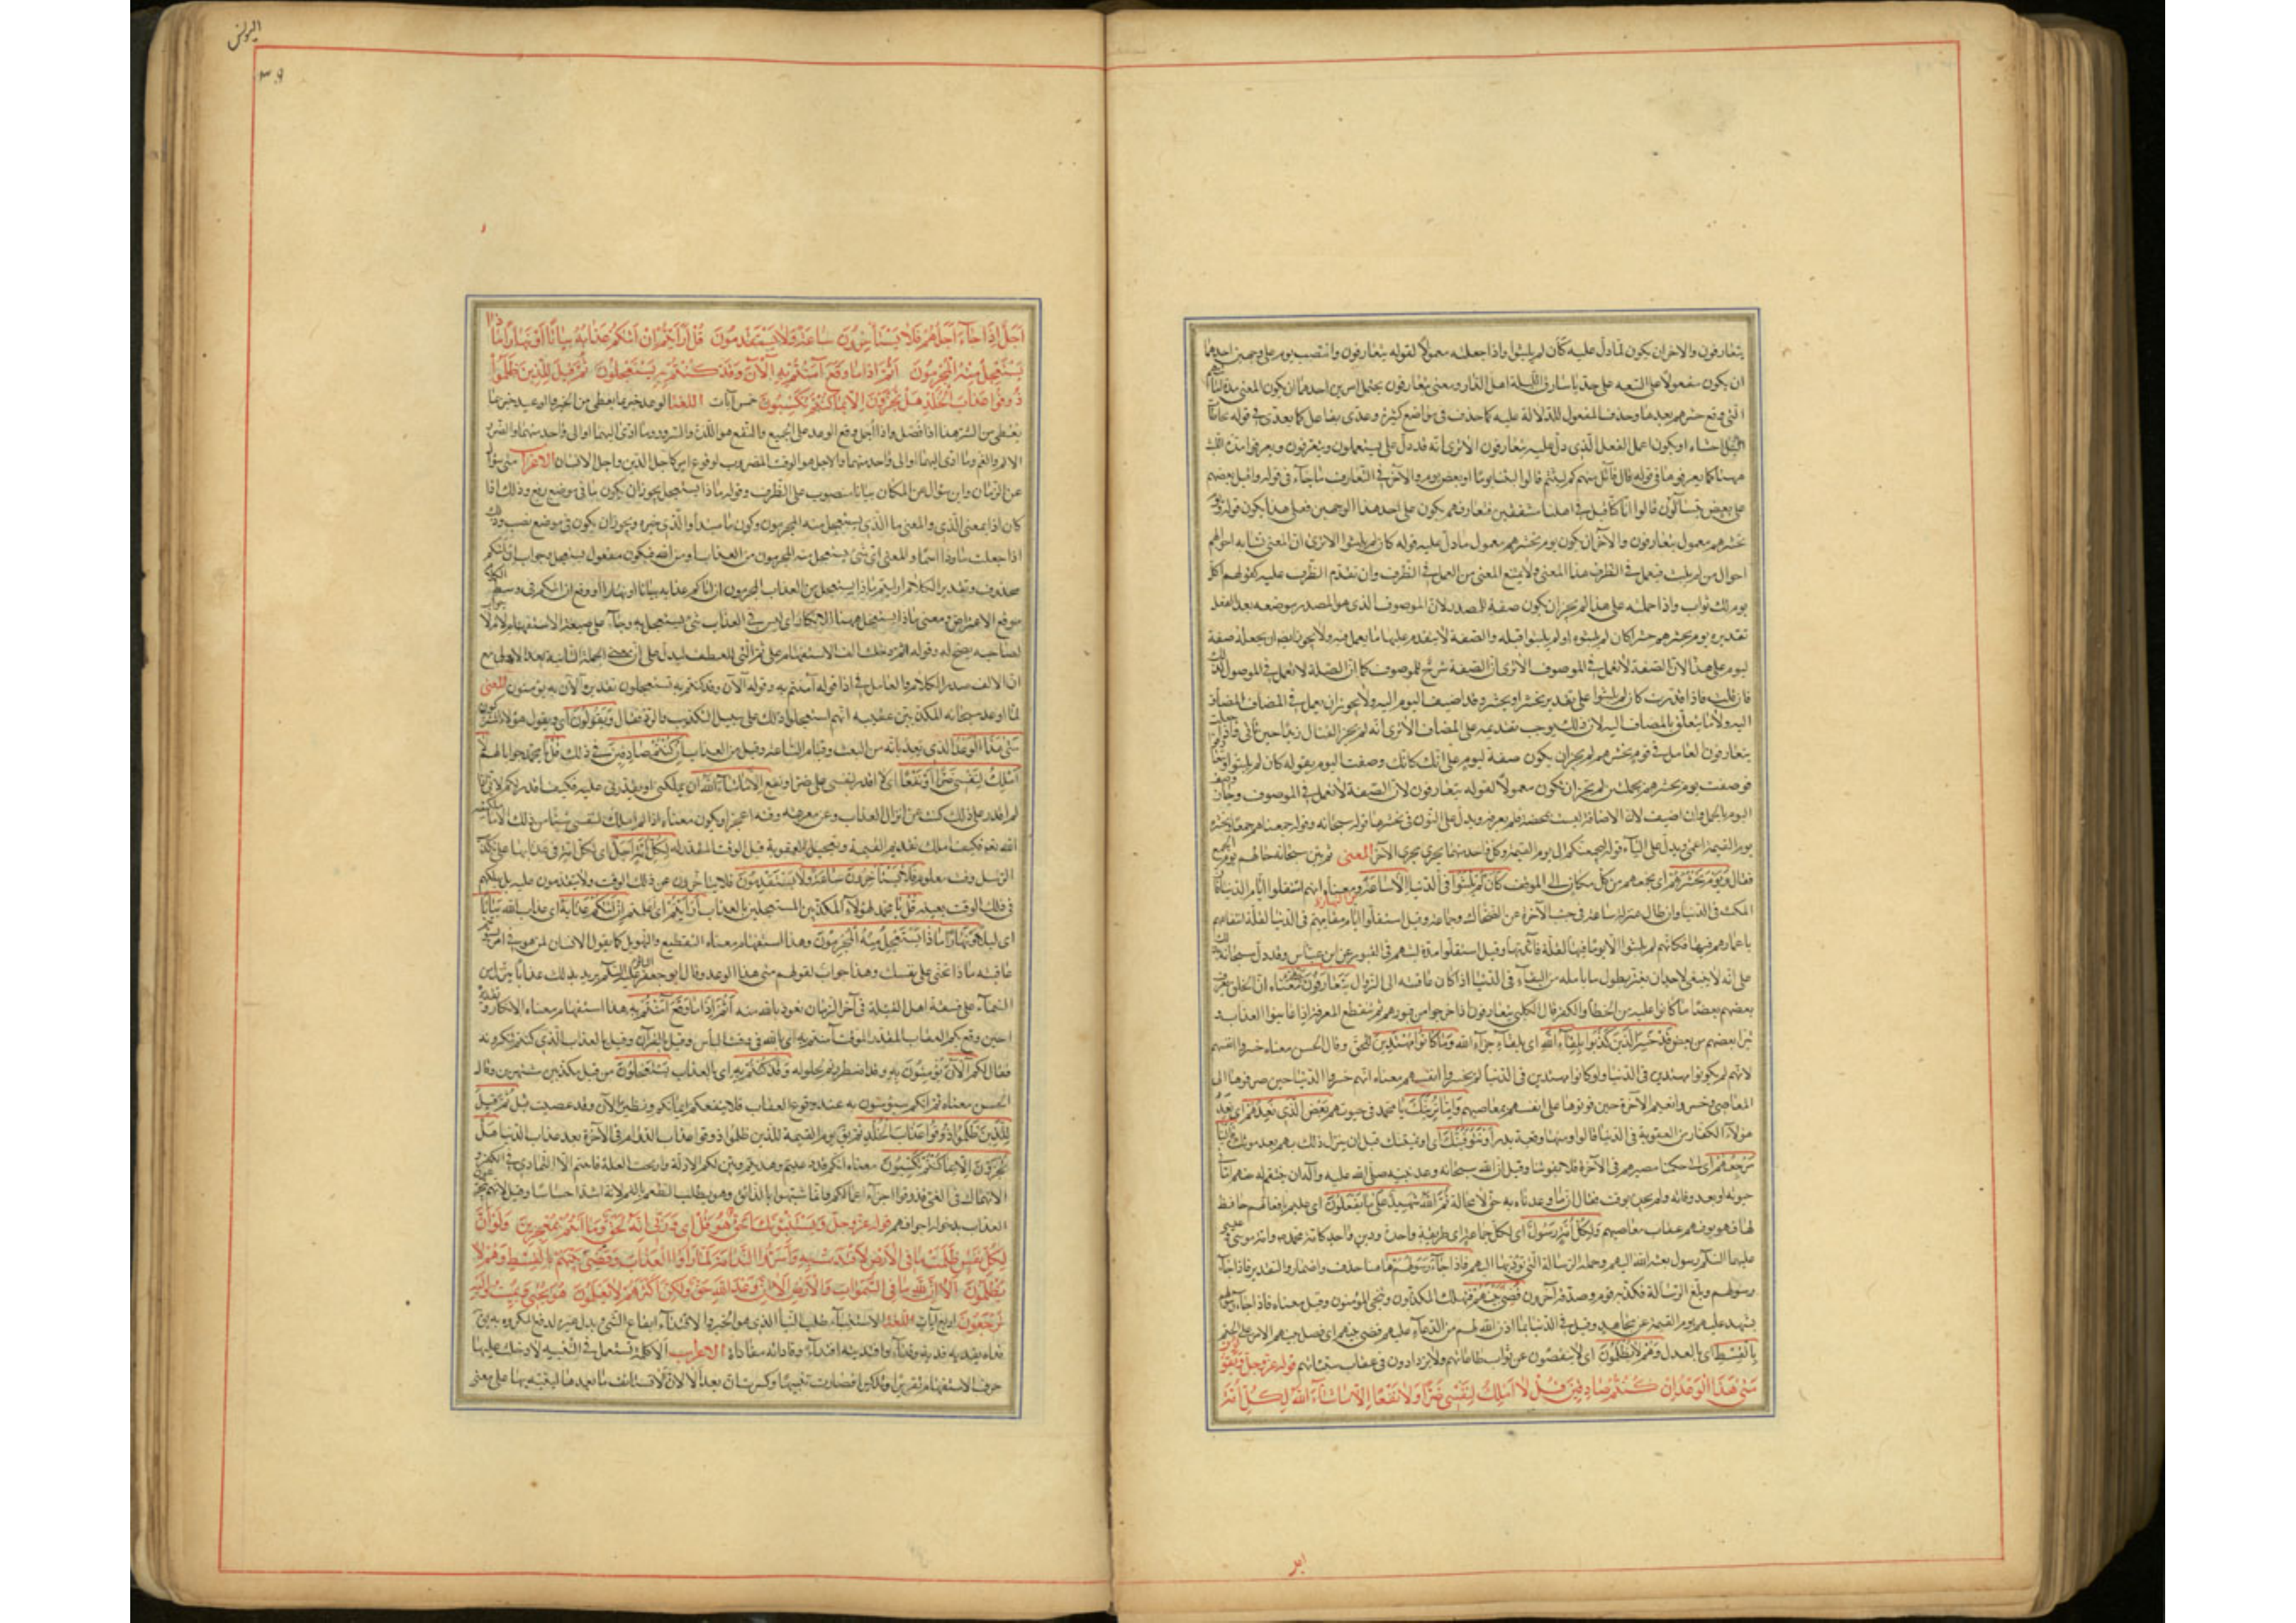 يتعارفون والاخر ان يكون لما دل عليه كأن لم يلبثوا واذا جعلته معمولا لقوله يتعارفون وانتصب يوم على وجهين احدهما
ان يكون مفعولا على السعة على حد يا سارق الليلة اهل الدار ومعنى يتعارفون يحتمل امرين احدهما ان يكون المعنى مدة
التي وقع حشرهم بعدها وحذف المفعول للدلالة عليه كما حذف في مواضع كثيرة وعدى تفاعل كما تعدى في قوله تخاطأت
النبل احشاءه او يكون اعمل الفعل الذي دل عليه يتعارفون الا ترى انه قد دل على يستعملون ويتعرفون
ههنا كما تعرفوها في قوله قال قائل منهم كم لبثتم قالوا لبثنا يوما او بعض يوم والاخر في التعارف ما جاء في قوله واقبل بعضهم
على بعض يتساءلون قالوا انا كنا قبل في اهلنا مشفقين فتعارفهم يكون على احد هذا الوجهين فعلى هذا يكون قوله ويوم
نحشرهم معمول يتعارفون والاخر ان يكون يوم نحشرهم معمول ما دل عليه قوله كان لم يلبثوا الا ترى ان المعنى تشابه احوالهم
احوال من لم يلبث فيعمل في الظرف هذا المعنى ولا يمتنع المعنى من العمل في الظرف وان تقدم الظرف عليه كقولهم اكل
يوم لك ثواب واذا حملته على هذا لم يجز ان يكون صفة للمصدر لان الموصوف الذي هو المصدر موضعه بعد الفعل
تقديره يوم نحشرهم حشرا كان لم يلبثوه او لم يلبثوا قبله والصفة لا يتقدم عليها ما يعمل فيه ولا يجوز ايضا ان تجعله صفة
ليوم على هذا لان الصفة لا تعمل في الموصوف الا ترى ان الصفة شرح للموصوف كما ان الصلة لا تعمل في الموصول
فان قلت فاذا قدرت كان لم يلبثوا على تقدير نحشر او يحشر وقد اضيف اليوم اليه ولا يجوز ان يعمل في المضاف المضاف
اليه ولا ما يتعلق بالمضاف اليه لان ذلك يوجب تقديمه على المضاف الا ترى انه لم يجز القتال زيدا حين تأتي واذا جعلت
يتعارفون العامل في يوم نحشرهم لم يجز ان يكون صفة ليوم على انك كانك وصفت اليوم بقوله كان لم يلبثوا
فوصفت يوم نحشرهم بجملة لم يجز ان يكون معمولا لقوله يتعارفون لان الصفة لا تعمل في الموصوف وجاز وصف
اليوم بالجمل وان اضيف لان الاضافة ليست محضة فلم يعرفه ويدل على النون في نحشرهم قوله سبحانه وقوله جمعناهم جمعا ونحشره
يوم القيمة اعمى ويدل على الياء قوله ليجمعنكم الى يوم القيمة وكل واحد منهما يجري مجرى الاخر المعنى ثم بين سبحانه حالهم يوم الجمع
فقال ويوم نحشرهم اى نجمعهم من كل مكان الى الموقف كأن لم يلبثوا في الدنيا الا ساعة من النهار ومعناه انهم استقلوا ايام الدنيا فان
المكث في الدنيا وان طال بمنزلة ساعة في جنب الاخرة عن الضحاك وجماعة وقيل استقلوا ايام مقامهم في الدنيا لقلة انتفاعهم
باعمارهم فيها فكانهم لم يلبثوا الا يوما فيها لقلة فائدتها وقيل استقلوا مدة لبثهم في القبور عن ابن عباس وقد دل سبحانه بذلك
على انه لا ينبغي لاحد ان يغتر بطول ما يأمله من البقاء في الدنيا اذا كان عاقبته الى الزوال يتعارفون بينهم معناه ان الخلق يعرف
بعضهم بعضا ما كانوا عليه من الخطأ والكفر قال الكلبي يتعارفون اذا خرجوا من قبورهم ثم تنقطع المعرفة اذا عاينوا العذاب
تبرا بعضهم من بعض قد خسر الذين كذبوا بلقاء الله اى بلقاء جزاء الله وما كانوا مهتدين للحق وقال الحسن معناه خسروا انفسهم
لانهم لم يكونوا مهتدين في الدنيا ولو كانوا مهتدين في الدنيا لم يخسروا انفسهم ومعناه انهم خسروا الدنيا حين صرفوها الى
المعاصي وخسروا نعيم الاخرة حين فوتوها على انفسهم بمعاصيهم واما نرينك يا محمد في حيوتك بعض الذي نعدهم اى نعد
هؤلاء الكفار من العقوبة في الدنيا قالوا ومنها وقعة بدر او نتوفينك اى او نميتنك قبل ان ينزل ذلك بهم بعد موتك فالينا
مرجعهم اى الى حكمنا مصيرهم في الاخرة فلا يفوتنا وقيل ان الله سبحانه وعد نبيه صلى الله عليه وآله ان ينتقم له منهم اما في
حيوته او بعد وفاته ولم يحده بوقت فقال ان ما وعدناه به حق لا محالة ثم الله شهيد على ما يفعلون اى عليم بافعالهم حافظ
لها فهو يوفيهم عقاب معاصيهم ولكل امة رسول اى لكل جماعة اى طريقة واحدة ودين واحد كامة محمد وامة موسى وعيسى
عليهما السلم رسول بعثه الله اليهم وحمله الرسالة التي تؤديها اليهم فاذا جاء رسولهم ههنا حذف واضمار والتقدير فاذا جاء
رسولهم وبلغ الرسالة فكذبه قوم وصدقه آخرون قضي بينهم فيهلك المكذبون وينجي المؤمنون وقيل معناه فاذا جاء رسولهم
يشهد عليهم يوم القيمة عن مجاهد وقيل في الدنيا بما اذن الله لهم من الدعاء عليهم قضي بينهم اى فصل بينهم الامر على الحتم
بالقسط اى بالعدل وهم لا يظلمون اى لا ينقصون عن ثواب طاعاتهم ولا يزدادون في عقاب سيئاتهم قوله عز وجل ويقولون
متى هذا الوعد ان كنتم صادقين قل لا املك لنفسي ضرا ولا نفعا الا ما شاء الله لكل امة
اليونس
٣٩
اجل اذا جاء اجلهم فلا يستأخرون ساعة ولا يستقدمون قل ارأيتم ان اتيكم عذابه بياتا او نهارا ماذا
يستعجل منه المجرمون اثم اذا ما وقع آمنتم به آلآن وقد كنتم به يستعجلون ثم قيل للذين ظلموا
ذوقوا عذاب الخلد هل تجزون الا بما كنتم تكسبون خمس آيات اللغة الوعد خبر بما يعطى من الخير والوعيد خبر بما
يعطى من الشر هذا اذا فصل واذا اجمل وقع الوعد على الجميع والنفع هو اللذة والسرور وما ادى اليهما او الى واحد منهما والضر
الالم والغم وما ادى اليهما او الى واحد منهما والاجل هو الوقت المضروب لوقوع امر كاجل الدين واجل الانسان الاعراب متى سؤال
عن الزمان واين سؤال عن المكان بياتا منصوب على الظرف وقوله ماذا يستعجل يجوز ان يكون ما في موضع رفع وذلك اذا
كان ذا بمعنى الذي والمعنى ما الذي يستعجل منه المجرمون وكون ما مبتدأ والذي خبره ويجوز ان يكون في موضع نصب وذلك
اذا جعلت ما وذا اسما والمعنى اى شيء يستعجل منه المجرمون من العذاب او من الله فيكون مفعول يستعجل وجواب ان اتيكم
محذوف وتقدير الكلام ارأيتم ماذا يستعجل من العذاب المجرمون ان اتاكم عذابه بياتا او نهارا او وقع ان اتيكم في وسط الكلام
موقع الاعتراض ومعنى ماذا يستعجل ههنا الانكار اى ليس في العذاب شيء يستعجل به وجاء على صيغة الاستفهام لانه لا جواب
لصاحبه يصح له وقوله اثم دخلت الف الاستفهام على ثم التي للعطف ليدل على ان الجملة الثانية بعد الاولى مع
ان الالف صدر الكلام والعامل في اذا قوله آمنتم به وقوله آلآن وقد كنتم به تستعجلون تقديره آلآن به تؤمنون المعنى
لما اوعد سبحانه المكذبين عقبه انهم استعجلوا ذلك على سبيل التكذيب والرد فقال ويقولون اى ويقول هؤلاء المشركون
متى هذا الوعد الذي تعدنا به من البعث وقيام الساعة وقيل من العذاب ان كنتم صادقين في ذلك قل يا محمد جوابا لهم لا
املك لنفسي ضرا ولا نفعا اى لا اقدر لنفسي على ضر او نفع الا ما شاء الله ان يملكني او يقدرني عليه فكيف اقدر لكم لاني اذا
لم اقدر على ذلك كنت عن انزال العذاب وعن معرفة وقته اعجز ويكون معناه اذا لم املك لنفسي شيئا من ذلك الا ما ملكنيه
الله تعالى فكيف املك تقديم القيمة وتعجيل العقوبة قبل الوقت المقدر له لكل امة اجل اى لكل امة في عذابها على تكذيب
الرسل وقت معلوم فلا يستأخرون ساعة ولا يستقدمون فلا يتأخرون عن ذلك الوقت ولا يتقدمون عليه بل يهلكهم
في ذلك الوقت بعينه قل يا محمد لهؤلاء المكذبين المستعجلين بالعذاب أرأيتم اى اعلمتم ان اتيكم عذابه اى عذاب الله بياتا
اى ليلا او نهارا ماذا يستعجل منه المجرمون وهذا استفهام معناه التفظيع والتهويل كما يقول الانسان لمن هو في امر يستوخم
عاقبته ماذا تجني على نفسك وهذا جواب لقولهم متى هذا الوعد وقال ابو جعفر الباقر عليه السلم يريد بذلك عذابا ينزل من
السماء على فسقة اهل القبلة في آخر الزمان نعوذ بالله منه اثم اذا ما وقع آمنتم به هذا استفهام معناه الانكار وتقديره
احين وقع بكم العذاب المقدر الموقت آمنتم به اى بالله في وقت اليأس وقيل بالقرآن وقيل بالعذاب الذي كنتم تنكرونه
فقال لكم آلآن تؤمنون به وقد اضطررتم لحلوله وقد كنتم به اى بالعذاب تستعجلون من قبل مكذبين مستهزئين وقال
الحسن معناه ثم انكم ستؤمنون به عند وقوع العذاب فلا ينفعكم ايمانكم ونظيره آلآن وقد عصيت قبل ثم قيل
للذين ظلموا ذوقوا عذاب الخلد ثم يقال يوم القيمة للذين ظلموا ذوقوا عذاب الدوام في الاخرة بعد عذاب الدنيا هل
تجزون الا بما كنتم تكسبون معناه انكم قد دعيتم وهديتم وبين لكم الادلة وازيحت العلة فابيتم الا التمادي في الكفر و
الانهماك في الغي فذوقوا جزاء اعمالكم وانما شبههوا بالذائق وهو يطلب الطعم بالفم لانه اشد احساسا وقيل لانهم يتجرعون
العذاب بدخوله اجوافهم قوله عز وجل ويستنبئونك احق هو قل اى وربي انه لحق وما انتم بمعجزين ولو ان
لكل نفس ظلمت ما في الارض لافتدت به واسروا الندامة لما رأوا العذاب وقضي بينهم بالقسط وهم لا
يظلمون الا ان لله ما في السموات والارض الا ان وعد الله حق ولكن اكثرهم لا يعلمون هو يحيي ويميت واليه
ترجعون اربع آيات اللغة الاستنباء طلب النبأ الذي هو الخبر والافتداء ايقاع الشيء بدل غيره لدفع المكروه يقال
فداه يفديه فدية وفداء وافتديته افتداء وفاداته مفاداة الاعراب ألا كلمة تستعمل في التنبيه لا دخلت عليها
حرف الاستفهام تقريرا وتذكيرا فصارت تنبيها وكسرت ان بعد ألا لان ألا يستأنف ما بعدها لينبه بها على معنى